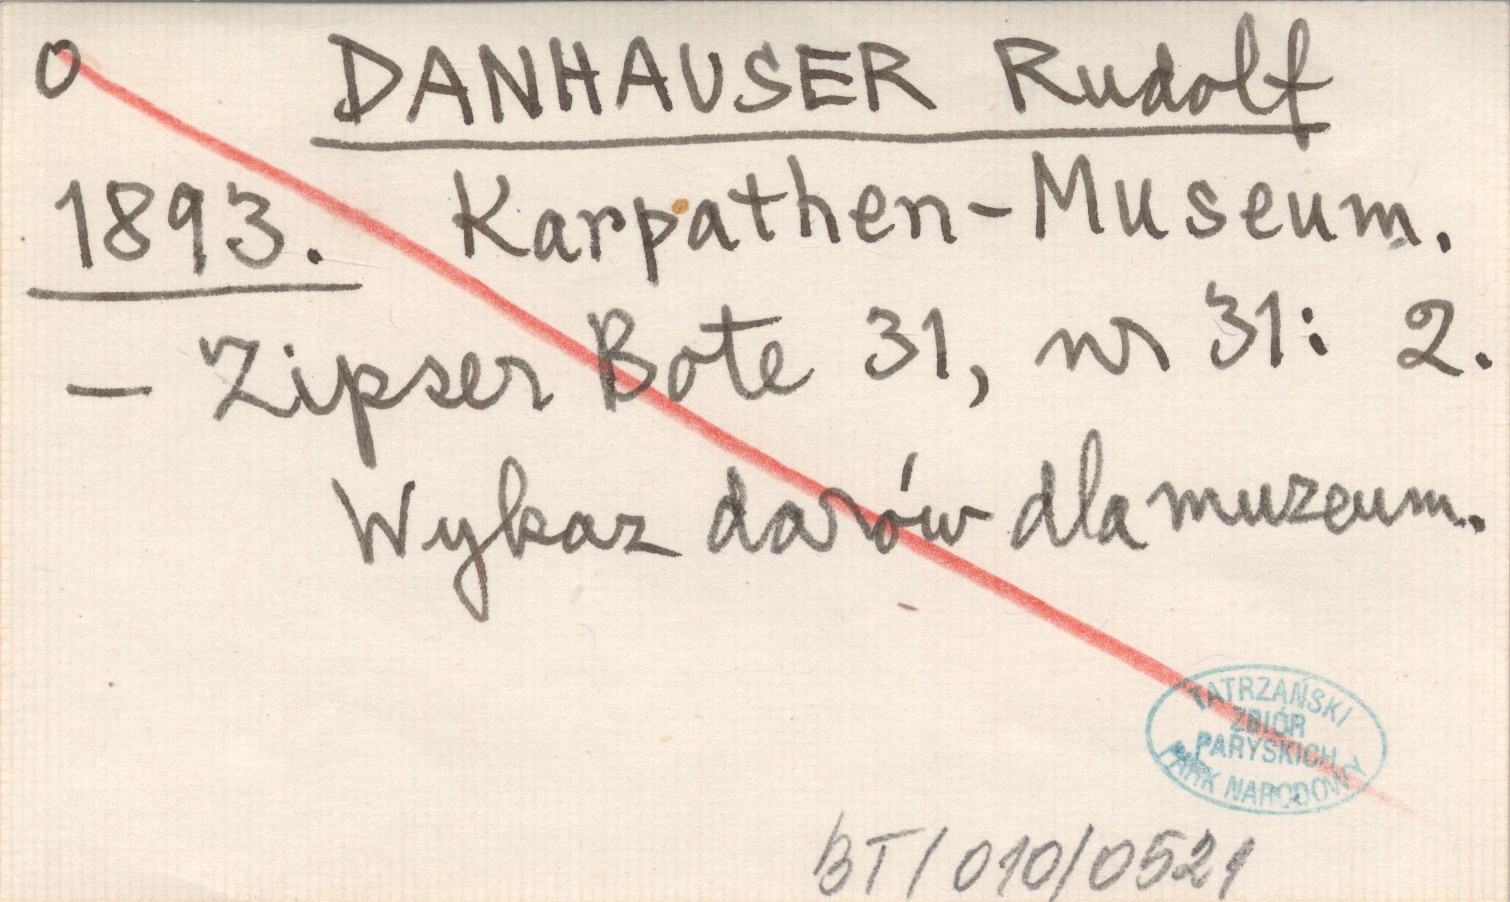 o DANHAUSER Rudolf
1893. Karpathen-Museum.
— Zipser Bote 31, nr 31: 2.
Wykaz darów dla muzeum.
TATRZAŃSKI
ZBIÓR
PARYSKICH
PARK NARODOWY
BT/010/0521